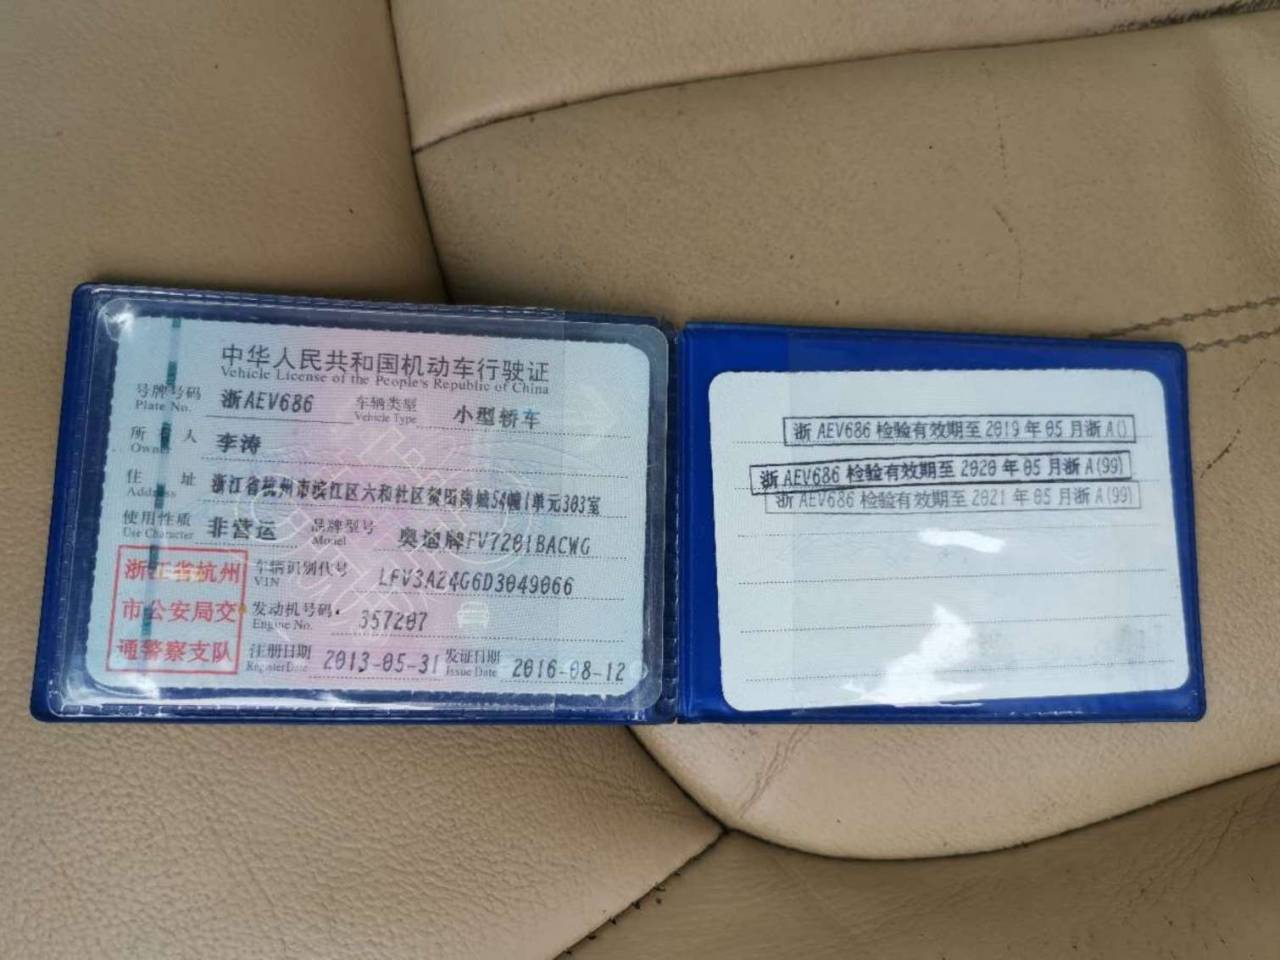 中华人民共和国机动车行驶证
Vehicle License of the People's Republic of China
号牌号码 浙AEV686 车辆类型 小型轿车
Plate No. Vehicle Type
所有人 李涛
Owner
住址 浙江省杭州市滨江区六和社区 54幢1单元303室
Address
使用性质 非营运 品牌型号 奥迪牌FV7201BACWG
Use Character Model
车辆识别代号 LFV3A24G6D3049066
VIN
发动机号码 357207
Engine No.
注册日期 2013-05-31 发证日期 2016-08-12
Register Date Issue Date
浙江省杭州
市公安局交
通警察支队
浙AEV686检验有效期至2019年05月浙A()
浙AEV686检验有效期至2020年05月浙A(99)
浙AEV686检验有效期至2021年05月浙A(99)